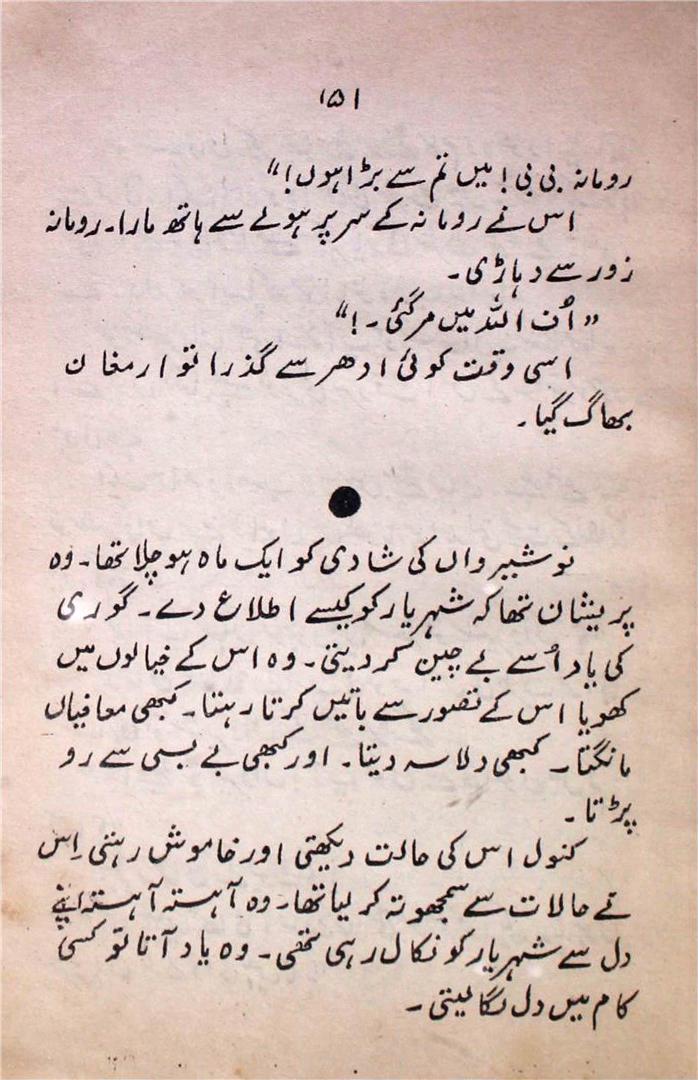 ۱۵۱
رومانہ بی بی! میں تم سے بڑا ہوں!"
اس نے رومانہ کے سر پر ہولے سے ہاتھ مارا۔ رومانہ
زور سے دہاڑی۔
"اُف اللہ میں مر گئی۔!"
اسی وقت کوئی ادھر سے گذرا تو ارمغان
بھاگ گیا۔
نوشیرواں کی شادی کو ایک ماہ ہو چلا تھا۔ وہ
پریشان تھا کہ شہریار کو کیسے اطلاع دے۔ گوری
کی یاد اُسے بے چین کر دیتی۔ وہ اس کے خیالوں میں
کھویا اس کے تصور سے باتیں کرتا رہتا۔ کبھی معافیاں
مانگتا۔ کبھی دلاسہ دیتا۔ اور کبھی بے بسی سے رو
پڑتا۔
کنول اس کی حالت دیکھتی اور خاموش رہتی اِس
نے حالات سے سمجھوتہ کر لیا تھا۔ وہ آہستہ آہستہ اپنے
دل سے شہریار کو نکال رہی تھی۔ وہ یاد آتا تو کسی
کام میں دل لگا لیتی۔